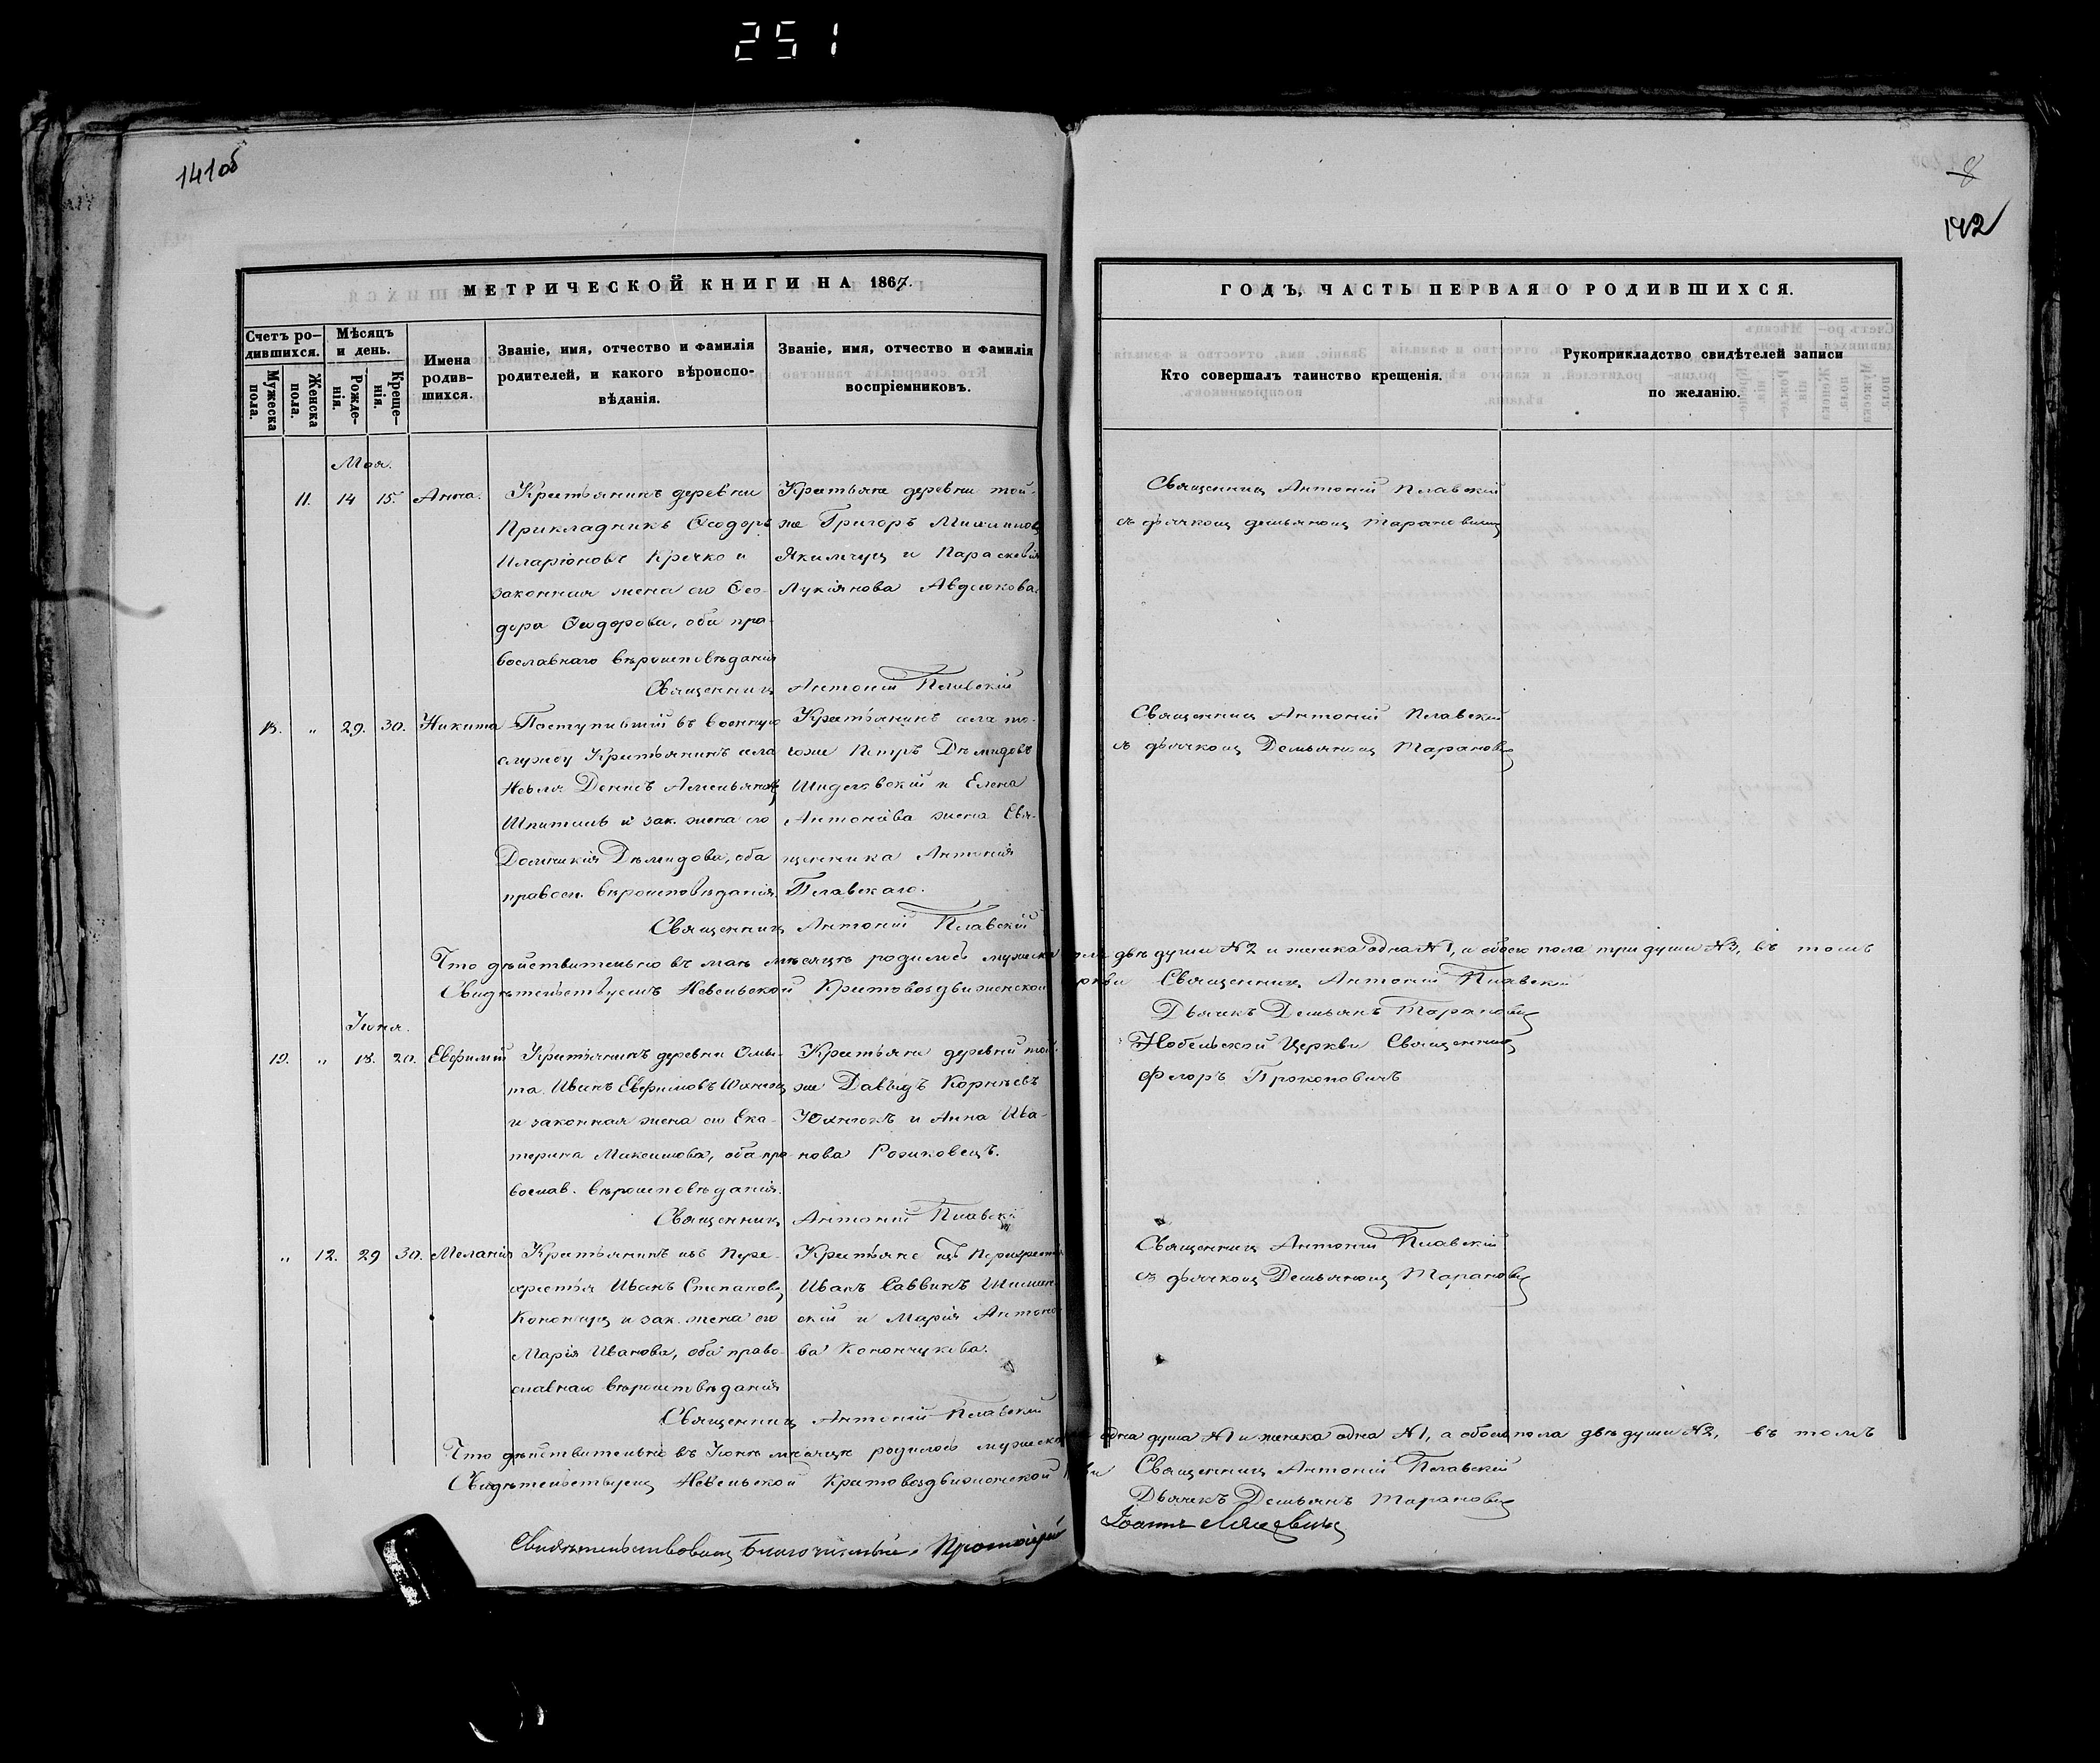 251
141об
8
142
МЕТРИЧЕСКОЙ КНИГИ НА 1867.
ГОДЪ, ЧАСТЬ ПЕРВАЯ О РОДИВШИХСЯ.
Счетъ ро-
дившихся.
Мужеска
пола.
Женска
пола.
Мѣсяцъ
и день.
Рожде-
нія.
Креще-
нія.
Имена
родив-
шихся.
Званіе, имя, отчество и фамилія
родителей, и какого вѣроиспо-
вѣданія.
Званіе, имя, отчество и фамилія
воспріемниковъ.
Кто совершалъ таинство крещенія.
Рукоприкладство свидѣтелей записи
по желанію.
Мая.
11. 14 15. Анна.
Крестьянинъ деревни
Прикладникъ Ѳеодоръ
Иларіоновъ Кречко и
законная жена его Ѳео-
дора Ѳеодорова, оба пра-
вославнаго вѣроисповѣданія
Крестьяне деревни той-
же Григоръ
Якимчукъ и Параскевія
Лукіянова Авдеюкова.
Священникъ Антоній Плавскій
съ дьячкомъ Демьяномъ Тарановичемъ
Священникъ Антоній Плавскій
" 29. 30. Никита
Поступившій въ военную
службу Крестьянинъ села
Невля Денисъ Емельяновъ
и зак. жена его
Домникія Дѣмидова, оба
правосл. вѣроисповѣданія.
Крестьянинъ села то-
гоже Петръ Дѣмидовъ
и Елена
Антоніева жена Свя-
щенника Антонія
Плавскаго.
Священникъ Антоній Плавскій
съ дьячкомъ Демьяномъ Тарановичъ
Священникъ Антоній Плавскій
Что дѣйствительно въ маѣ мѣсяцѣ родилось мужеска пола двѣ души №2 и женска одна №1, а обоего пола три души №3, въ томъ
Свидѣтельствуемъ Невельской Крестовоздвиженской Церкви Священникъ Антоній Плавскій
Дьячекъ Демьянъ Тарановичъ
Іюня.
19. " 18. 20. Евфимій
Крестьянинъ деревни Омы-
та Иванъ Евфимовъ Юхнюкъ
и законная жена его Ека-
терина Максимова, оба пра-
вослав. вѣроисповѣданія.
Крестьяне деревни той-
же Давыдъ Корнѣевъ
Юхнюкъ и Анна Ива-
нова
Нобельской Церкви Священникъ
Ѳедоръ Прокоповичъ
Священникъ Антоній Плавскій
" 12. 29 30. Меланія
Крестьянинъ изъ Пере-
хрестья Иванъ Степановъ
Конончукъ и зак. жена его
Марія Иванова, оба право-
славнаго вѣроисповѣданія
Крестьяне изъ Перехрестья
Иванъ Саввинъ
и Марія Антоно-
ва Конончукова.
Священникъ Антоній Плавскій
съ дьячкомъ Демьяномъ Тарановичъ
Священникъ Антоній Плавскій
Что дѣйствительно въ Іюнѣ мѣсяцѣ родилось мужеска одна душа №1 и женска одна №1, а обоего пола двѣ души №2, въ томъ
Свидѣтельствуемъ Невельской Крестовоздвиженской Священникъ Антоній Плавскій
Дьячекъ Демьянъ Тарановичъ
Свидѣтельствовалъ Благочинный Протоіерей Іоаннъ